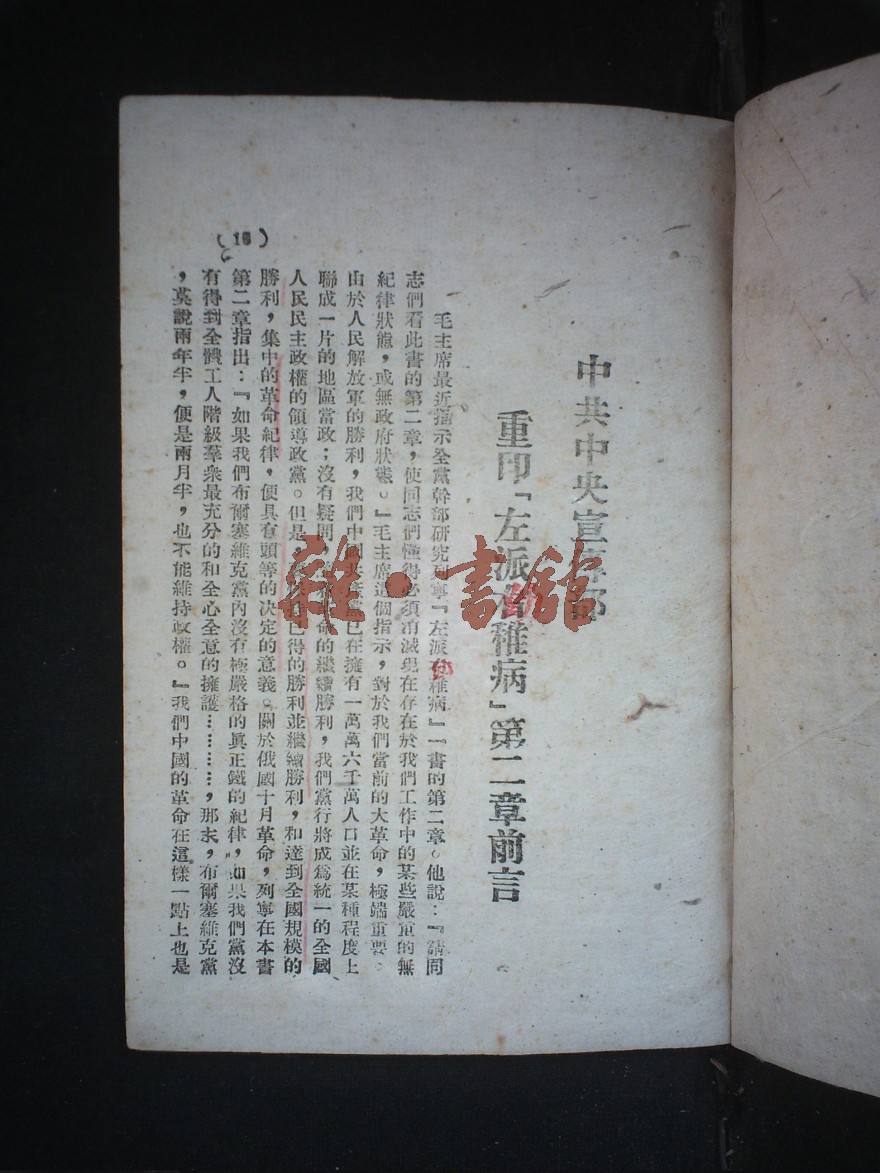 中共中央宣部
重印「左派稚病」第二章前言
毛主席最近指示全黨幹部研究列寧「左派稚病」一書的第二章。他說：『請同
志們看此書的第二章，使同志們懂得必須消滅現在存在於我們工作中的某些嚴重的無
紀律狀態，或無政府狀態。』毛主席這個指示，對於我們當前的大革命，極端重要。
由於人民解放軍的勝利，我們中國共產黨已在擁有一萬萬六千萬人口並在某種程度上
聯成一片的地區當政；沒有疑問，命的繼續勝利，我們黨行將成爲統一的全國
人民民主政權的領導政黨。但是，已得的勝利並繼續勝利，和達到全國規模的
勝利，集中的革命紀律，便具有頭等的決定的意義。關於俄國十月革命，列寧在本書
第二章指出：『如果我們布爾塞維克黨內沒有極嚴格的眞正鐵的紀律，如果我們黨沒
有得到全體工人階級羣衆最充分的和全心全意的擁護…………，那末，布爾塞維克黨
，莫說兩年半，便是兩月半，也不能維持政權。』我們中國的革命在這樣一點上也是
雜·書館